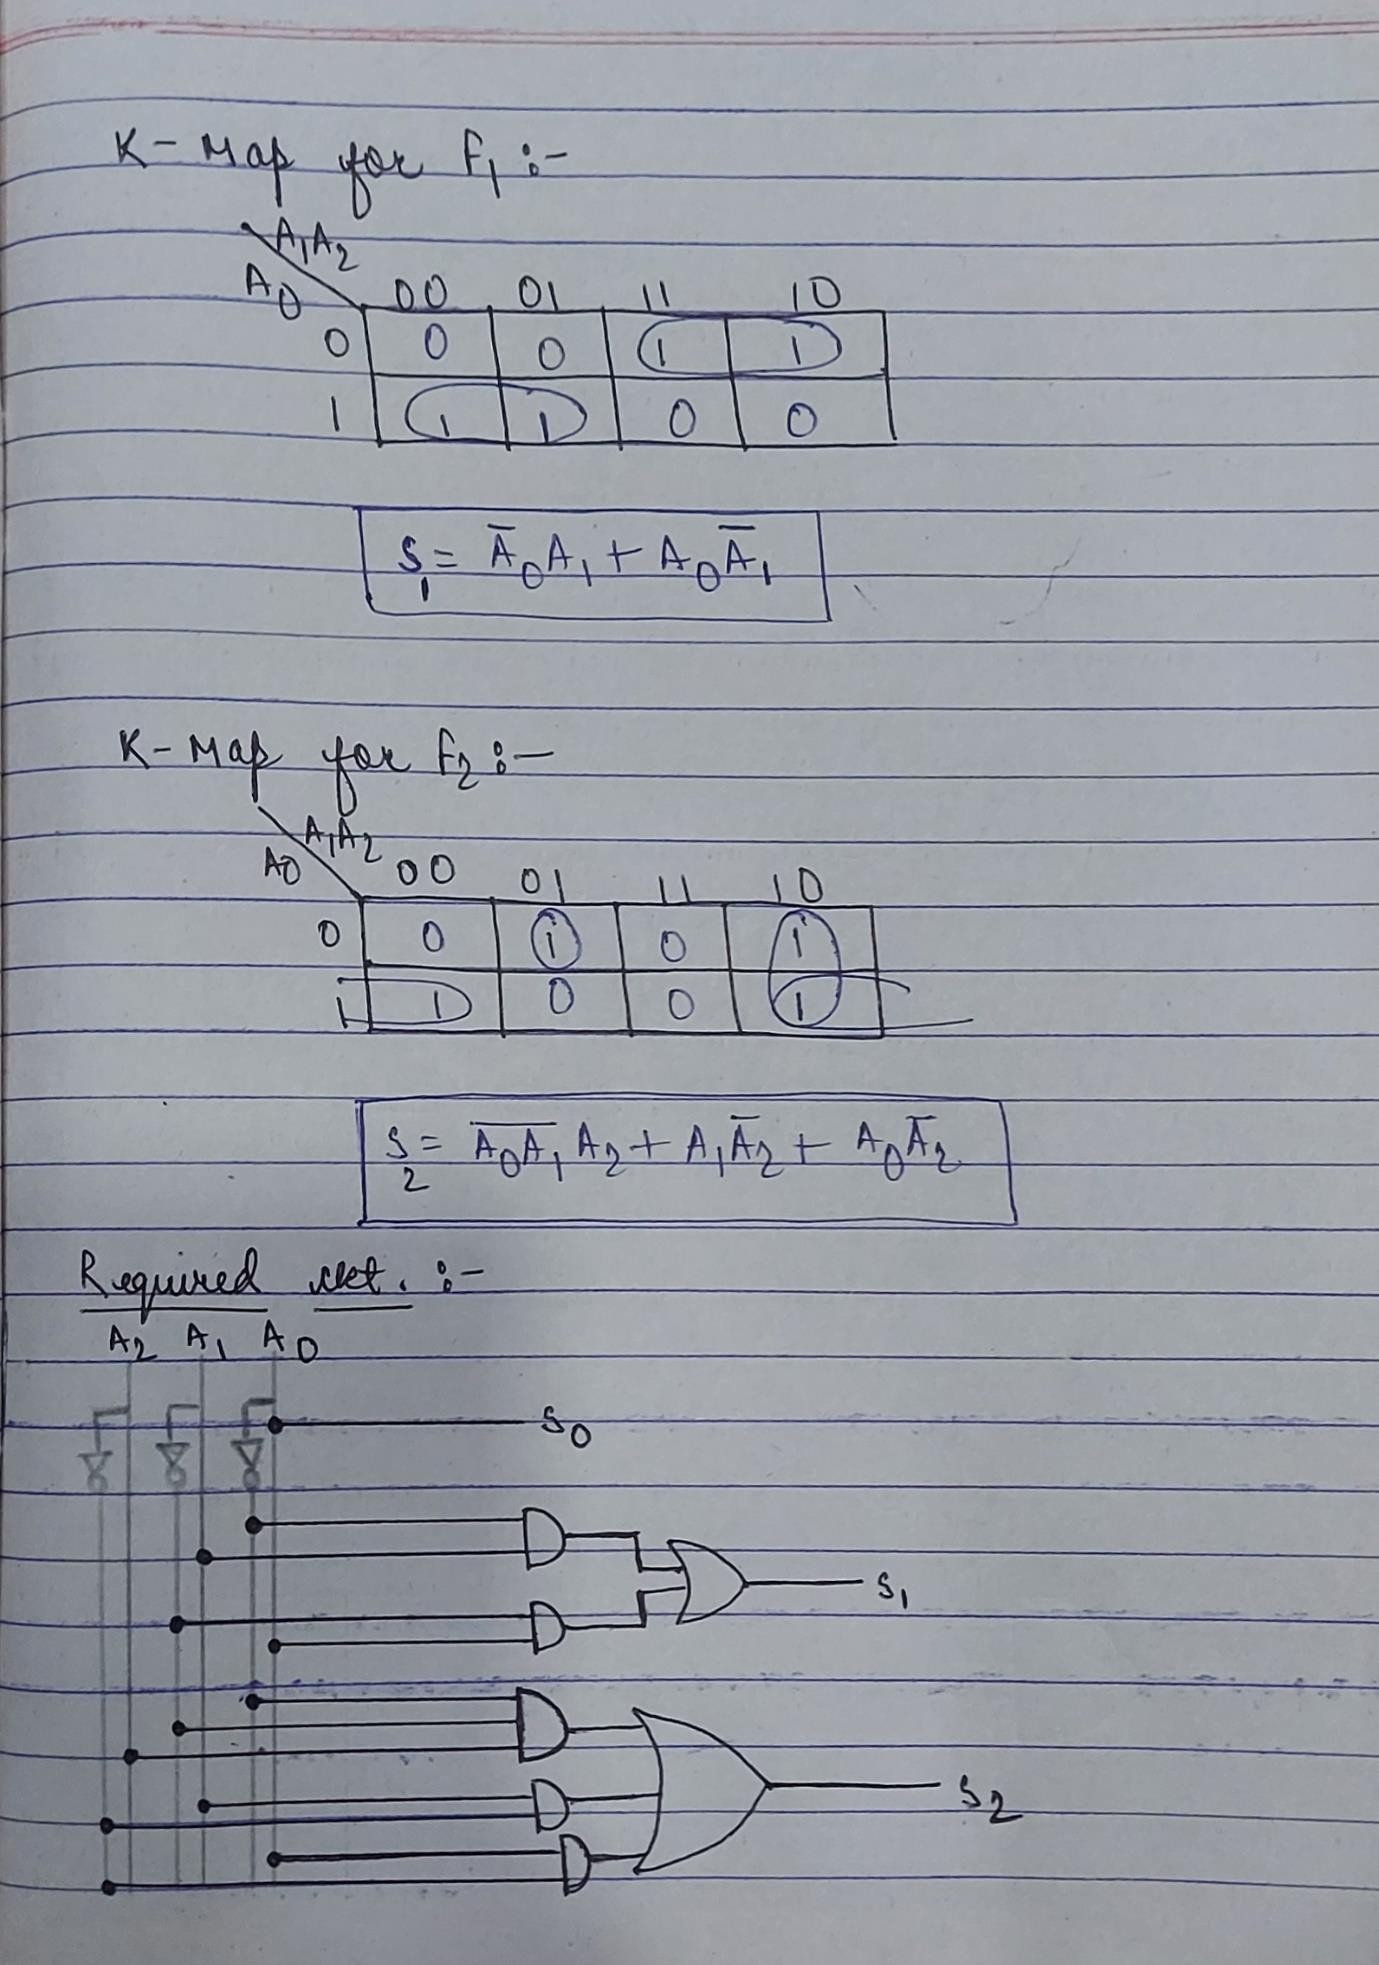 K - Map for F₁ :-
A₁A₂
A₀ 00 01 11 10
0 0 0 1 1
1 1 1 0 0
S₁ = A̅₀A₁ + A₀A̅₁
K - Map for F₂ :-
A₁A₂
A₀ 00 01 11 10
0 0 1 0 1
1 1 0 0 1
S₂ = \overline{A₀A₁} A₂ + A₁A̅₂ + A₀A̅₂
Required ckt. :-
A₂ A₁ A₀
S₀
S₁
S₂